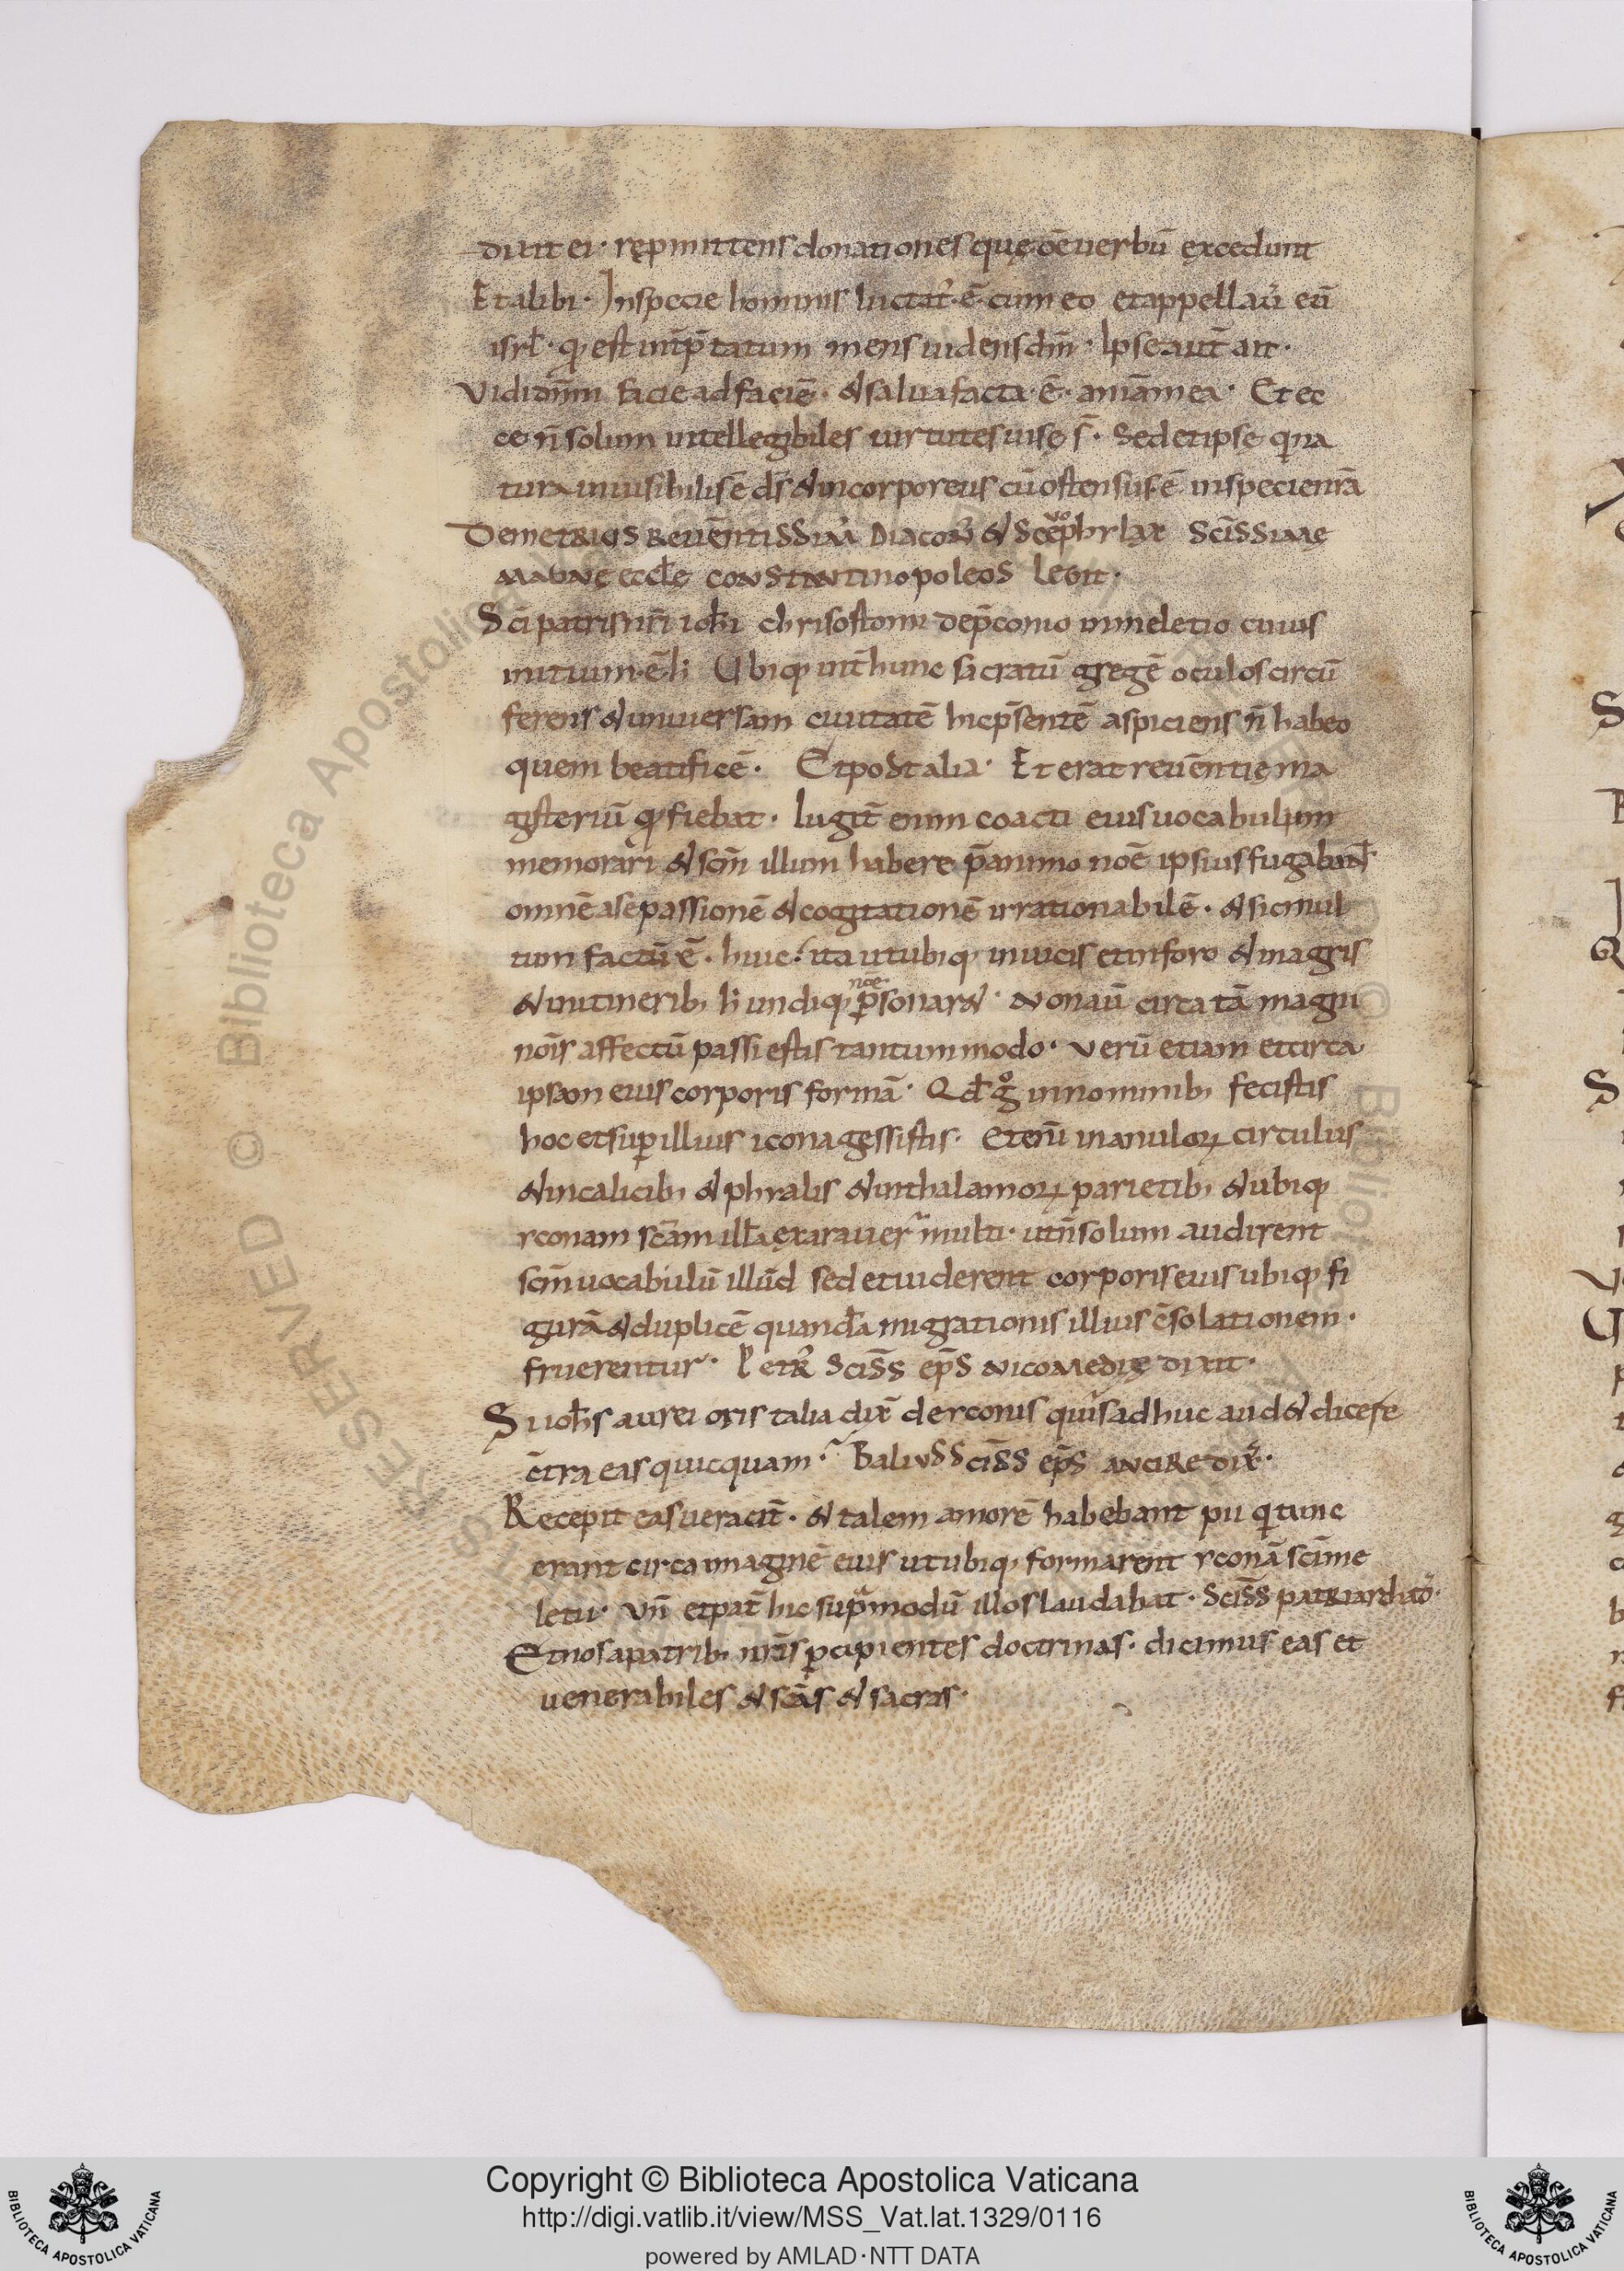 dixit ei· repmittens donationes quę oē uerbū excedunt
Et alibi· In specie hominis luctat᾿· ē· cum eo et appellau᾿ eū
isrl̄· qđ est int̄p̄tatum mens uidens dm̄· Ipse aut̄ ait·
Vidi dnm̄ facie ad faciē· & salua facta· ē· anīa mea· Et ec
ce n̄ solum intellegibiles uirtutes uisę s̄· Sed et ipse q na
tura inuisibilis ē ds̄ & incorporeus cū ostensus ē in specie nr̄a
Demetrius reuēntissim᾿ diacon᾿ & sceuophylax scissimę
magnę eccl̄ę constantinopoleos legit·
Sc̄i patris nr̄i ioh̄i chrisostomi de p̄conio in meletio cuius
initium· ē· h· Ubiq; int̄ hunc sacratū gregē oculos circū
ferens & uniuersam ciuitatē hic p̄sentē aspiciens n̄ habeo
quem beatificē· Et post alia· Et erat reuēntię ma
gisteriū qđ fiebat· Iugit̄ enim coacti eius uocabulum
memorari & scm̄ illum habere p̄ animo noē ipsius fugabant
omnē a se passionē & cogitationē irrationabilē· & sic mul
tum factū ē· huic· ita ut ubiq; in uicis et in foro & in agris
& in itinerib; h undiq; noē p̄sonar&· Non aū circa tā magni
nōis affectū passi estis tantummodo· Verū etiam et circa
ipsam eius corporis formā· Qd̄ g° in nominib; fecistis
hoc et sup illius icona gessistis· Etenī in anuloꝝ circulis
& in calicib; & phialis & in thalamoꝝ parietib; & ubiq;
yconam scām illā exarauer̄ multi· ut n̄ solum audirent
scm̄ uocabulū illūd sed et uiderent corporis eius ubiq; fi
gurā & duplicē quandā migrationis illius c̄solationem·
fruerentur· Petr᾿ sciss eps̄ nicomedię dixit·
Si ioh̄s aurei oris talia dix̄ de yconis quis adhuc aud& dicere
c̄tra eas quicquam· Basilius sciss eps̄ ancire dix̄·
Recepit eas ueracit̄· & talem amorē habebant pii q tunc
erant circa imaginē eius ut ubiq; formarent yconā sci me
letii· Vn̄ et pat̄ hic supra modū illos laudabat· Sciss patriarcha
Et nos a patrib; nr̄is pcipientes doctrinas· dicimus eas et
uenerabiles & scās & sacras·
Copyright © Biblioteca Apostolica Vaticana
http://digi.vatlib.it/view/MSS_Vat.lat.1329/0116
powered by AMLAD·NTT DATA